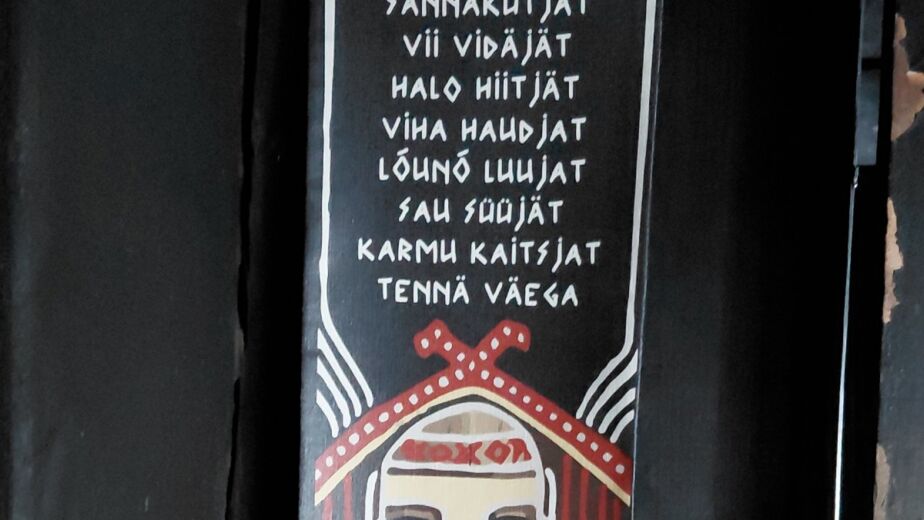 SANNAKÜTJÄT
VII VIDÄJÄT
HALO HIITJÄT
VIHA HAUDJAT
LÓUNÓ LUUJAT
SAU SÜÜJÄT
KARMU KAITSJAT
TENNÄ VÄEGA